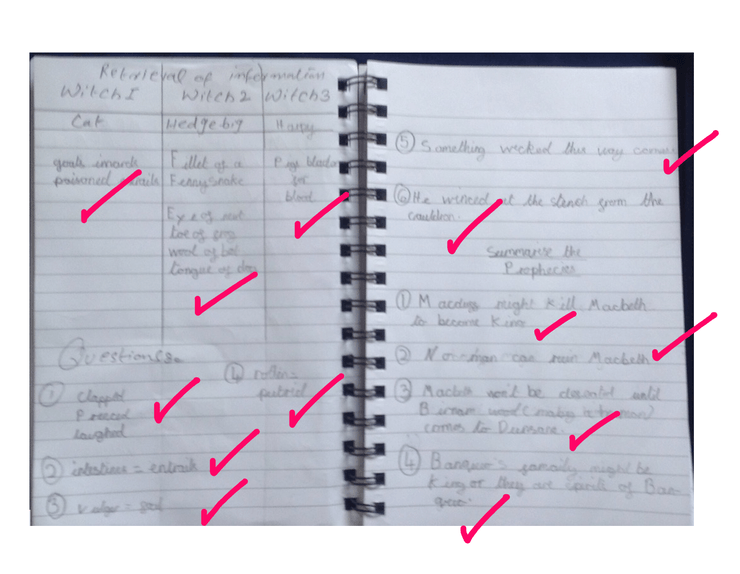 Retrieval of information
Witch1 Witch2 Witch3
Cat Hedgebig Harpy
goats
poisoned entrails
Fillet of a
Fennysnake
Eye of newt
toe of frog
wool of bat
tongue of dog
Pigs blood
or
blood
Questions
① Clapped
laughed
② intestines = entrails
③
④ rotten =
putrid
⑤ Something wicked this way comes
⑥ He winced at the stench from the
cauldron.
Summarise the
Prophecies
① Macduff might kill Macbeth
to become King
② No man can Macbeth
③ Macbeth won't be defeated until
Birnam wood (maby a
comes to Dunsane.
④ Banquo's family might be
King or they are spirits of Ban-
quo.